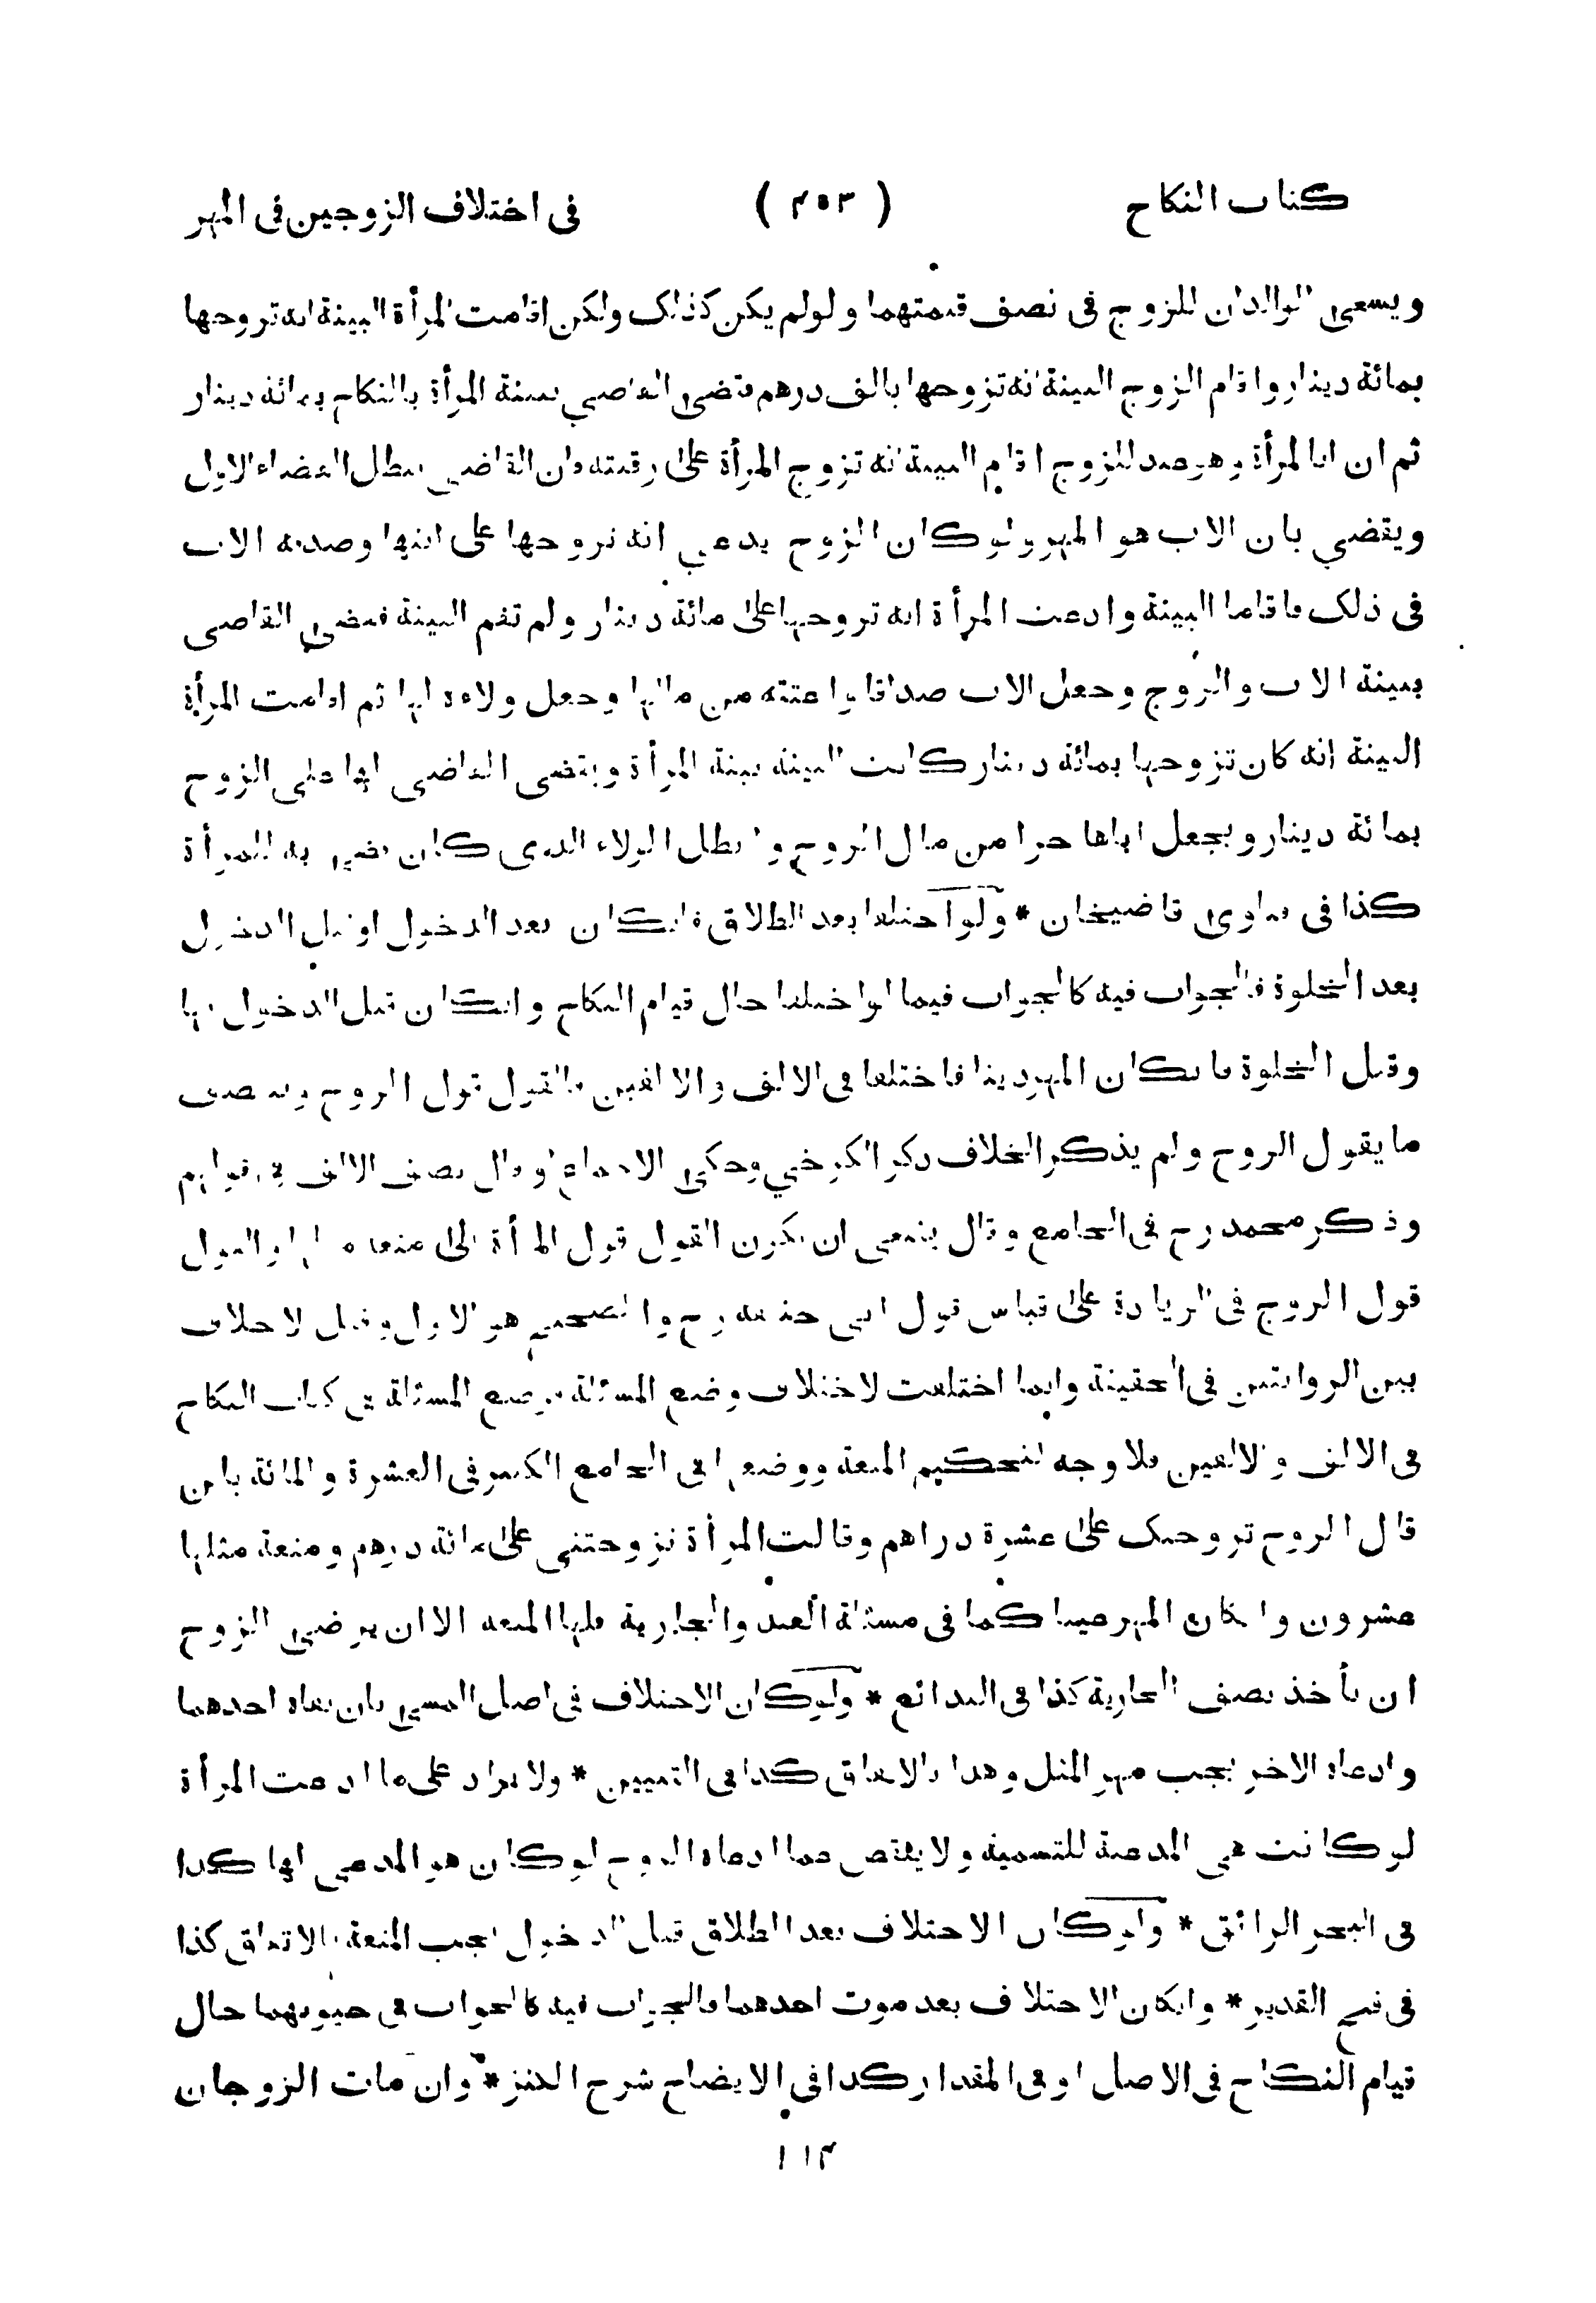 كتاب النكاح ( ٤٥٣ ) فى اختلاف الزوجين فى المهر
ويسعى الوالدان للزوج فى نصف قيمتهما ولو لم يكن كذلك ولكن اقامت المرأة البينة انه تزوجها
بمائة دينار واقام الزوج البينة انه تزوجها بالف درهم فقضى القاضي ببينة المرأة بالنكاح بمائة دينار
ثم ان ابا المرأة وهو عبد للزوج اقام البينة انه تزوج المرأة على رقبته فان القاضي يبطل القضاء الاول
ويقضي بان الاب هو المهر ولو كان الزوج يدعي انه تزوجها على ابيها وصدقه الاب
فى ذلك فاقاما البينة وادعت المرأة انه تزوجها على مائة دينار ولم تقم البينة فقضى القاضى
ببينة الاب والزوج وجعل الاب صداقا واعتقه من مالها وجعل ولاءه لها ثم اقامت المرأة
البينة انه كان تزوجها بمائة دينار كانت البينة بينة المرأة ويقضى القاضى لها على الزوج
بمائة دينار ويجعل اباها حرا من مال الزوج وابطل الولاء الذى كان قضى به للمرأة
كذا فى فتاوى قاضيخان * ولو اختلفا بعد الطلاق فانكان بعد الدخول او قبل الدخول
بعد الخلوة فالجواب فيه كالجواب فيما لو اختلفا حال قيام النكاح وانكان قبل الدخول بها
وقبل الخلوة فانكان المهر دينا فاختلفا فى الالف والالفين فالقول قول الزوج وينصف
ما يقول الزوج ولم يذكر الخلاف ذكر الكرخي وحكى الاجماع وقال نصف الالف فى قولهم
وذكر محمد رح فى الجامع وقال ينبغى ان يكون القول قول المرأة الى متعة مثلها والقول
قول الزوج فى الزيادة على قياس قول ابى حنيفة رح والصحيح هو الاول وقيل لا خلاف
بين الروايتين فى الحقيقة وانما اختلفت لاختلاف وضع المسئلة فوضع المسئلة فى كتاب النكاح
فى الالف والالفين فلا وجه لتحكيم المتعة ووضعها فى الجامع الكبير فى العشرة والمائة بان
قال الزوج تزوجتك على عشرة دراهم وقالت المرأة تزوجتنى على مائة درهم ومتعة مثلها
عشرون وانكان المهر عينا كما فى مسئلة العبد والجارية فلها المتعة الا ان يرضى الزوج
ان تأخذ نصف الجارية كذا فى البدائع * ولو كان الاختلاف فى اصل المسمى بان نفاه احدهما
وادعاه الاخر يجب مهر المثل وهذا بالاتفاق كذا فى التبيين * ولا يزاد على ما ادعت المرأة
لو كانت هى المدعية للتسمية ولا ينقص عما ادعاه الزوج لو كان هو المدعى لها كذا
فى البحر الرائق * ولو كان الاختلاف بعد الطلاق قبل الدخول يجب المتعة بالاتفاق كذا
فى فتح القدير * وانكان الاختلاف بعد موت احدهما فالجواب فيه كالجواب فى حيوتهما حال
قيام النكاح فى الاصل او فى المقدار كذا فى الايضاح شرح الكنز * وان مات الزوجان
١١٤